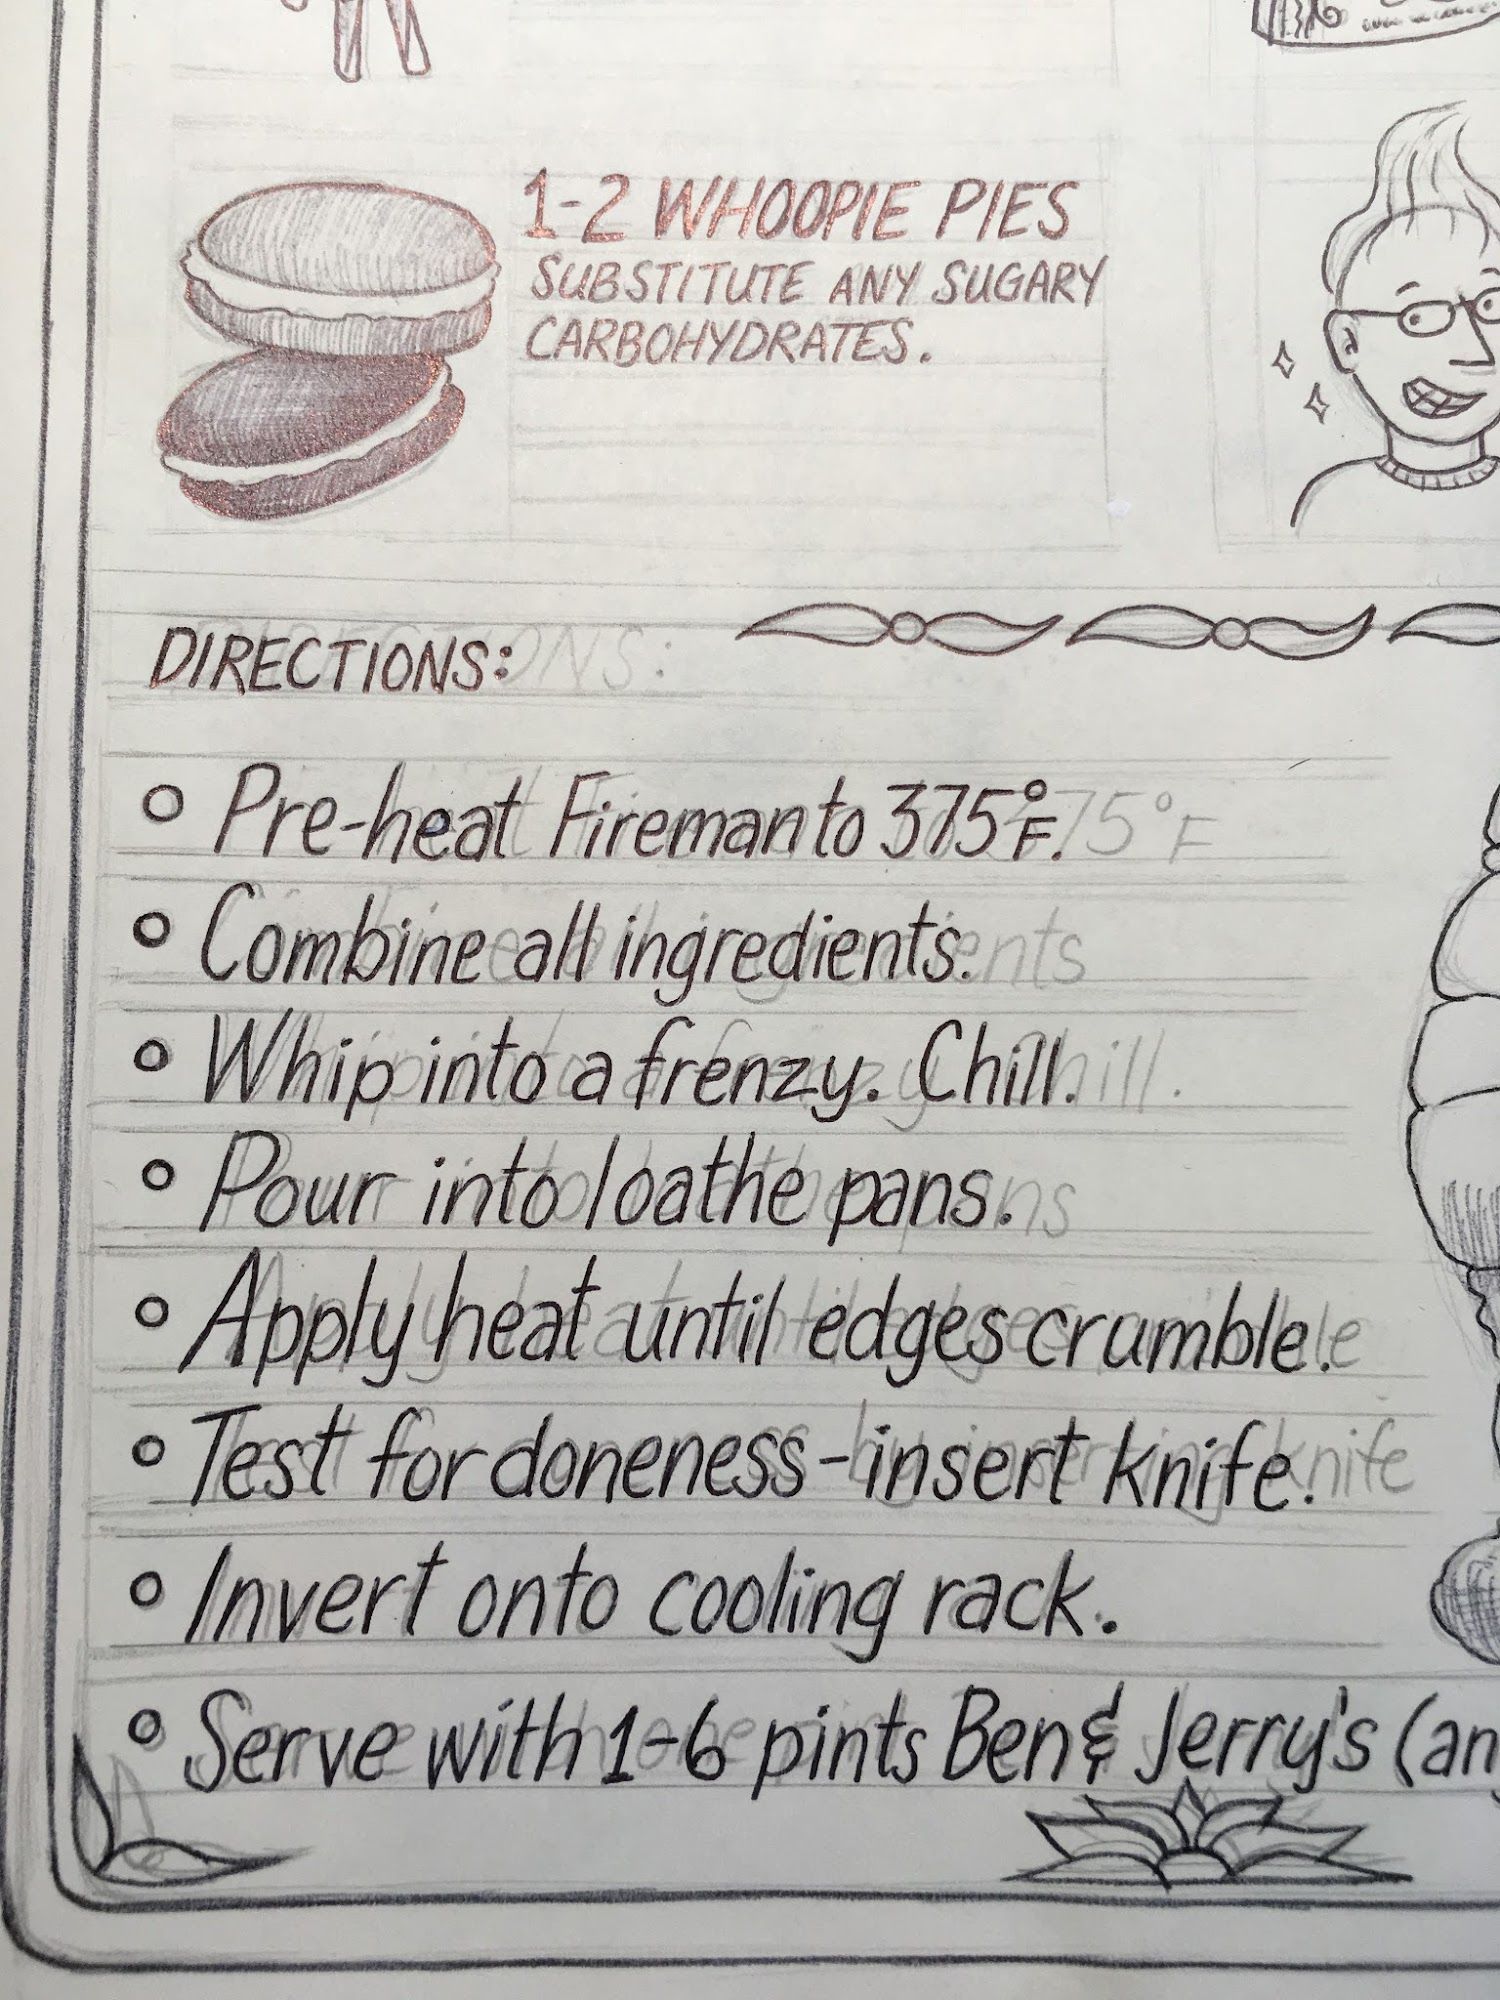 1-2 WHOOPIE PIES
SUBSTITUTE ANY SUGARY
CARBOHYDRATES.
DIRECTIONS:
Pre-heat Fireman to 375°F.
Combine all ingredients.
Whip into a frenzy. Chill.
Pour into loathe pans.
Apply heat until edges crumble.
Test for doneness - insert knife.
Invert onto cooling rack.
Serve with 1-6 pints Ben & Jerry's (an